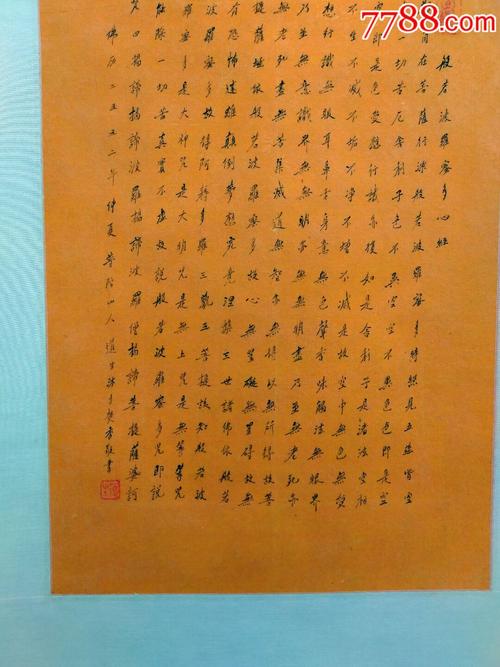 7788.com
般若波羅密多心經
自在菩薩行深般若波羅密多時照見五蘊皆空
一切苦厄舍利子色不異空空不異色色即是空
空即是色受想行識亦復如是舍利子是諸法空相
不生不滅不垢不淨不增不減是故空中無色無受
想行識無眼耳鼻舌身意無色聲香味觸法無眼界
乃至無意識界無無明亦無無明盡乃至無老死亦
無老死盡無苦集滅道無智亦無得以無所得故菩
提薩埵依般若波羅密多故心無罣礙無罣礙故無
有恐怖遠離顛倒夢想究竟涅槃三世諸佛依般若
波羅密多故得阿耨多羅三藐三菩提故知般若波
羅密多是大神咒是大明咒是無上咒是無等等咒
能除一切苦真實不虛故說般若波羅密多咒即說
咒曰揭諦揭諦波羅揭諦波羅僧揭諦菩提薩婆訶
佛历二五五二年仲夏普陀山人道生沐手焚香敬書